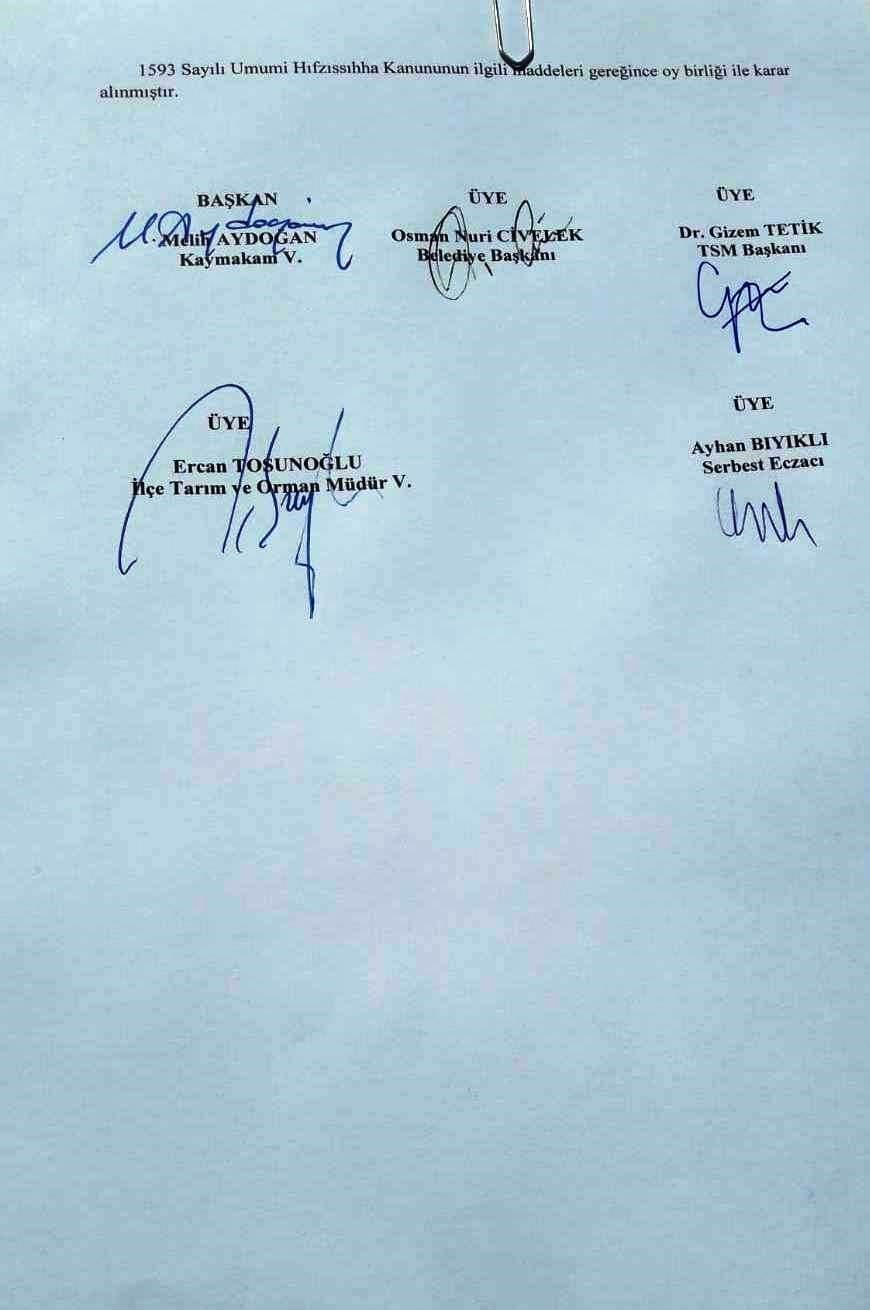 1593 Sayılı Umumi Hıfzıssıhha Kanununun ilgili maddeleri gereğince oy birliği ile karar
alınmıştır.
BAŞKAN
Melih AYDOĞAN
Kaymakam V.
ÜYE
Osman Nuri CİVELEK
Belediye Başkanı
ÜYE
Dr. Gizem TETİK
TSM Başkanı
ÜYE
Ercan TOSUNOĞLU
İlçe Tarım ve Orman Müdür V.
ÜYE
Ayhan BIYIKLI
Serbest Eczacı